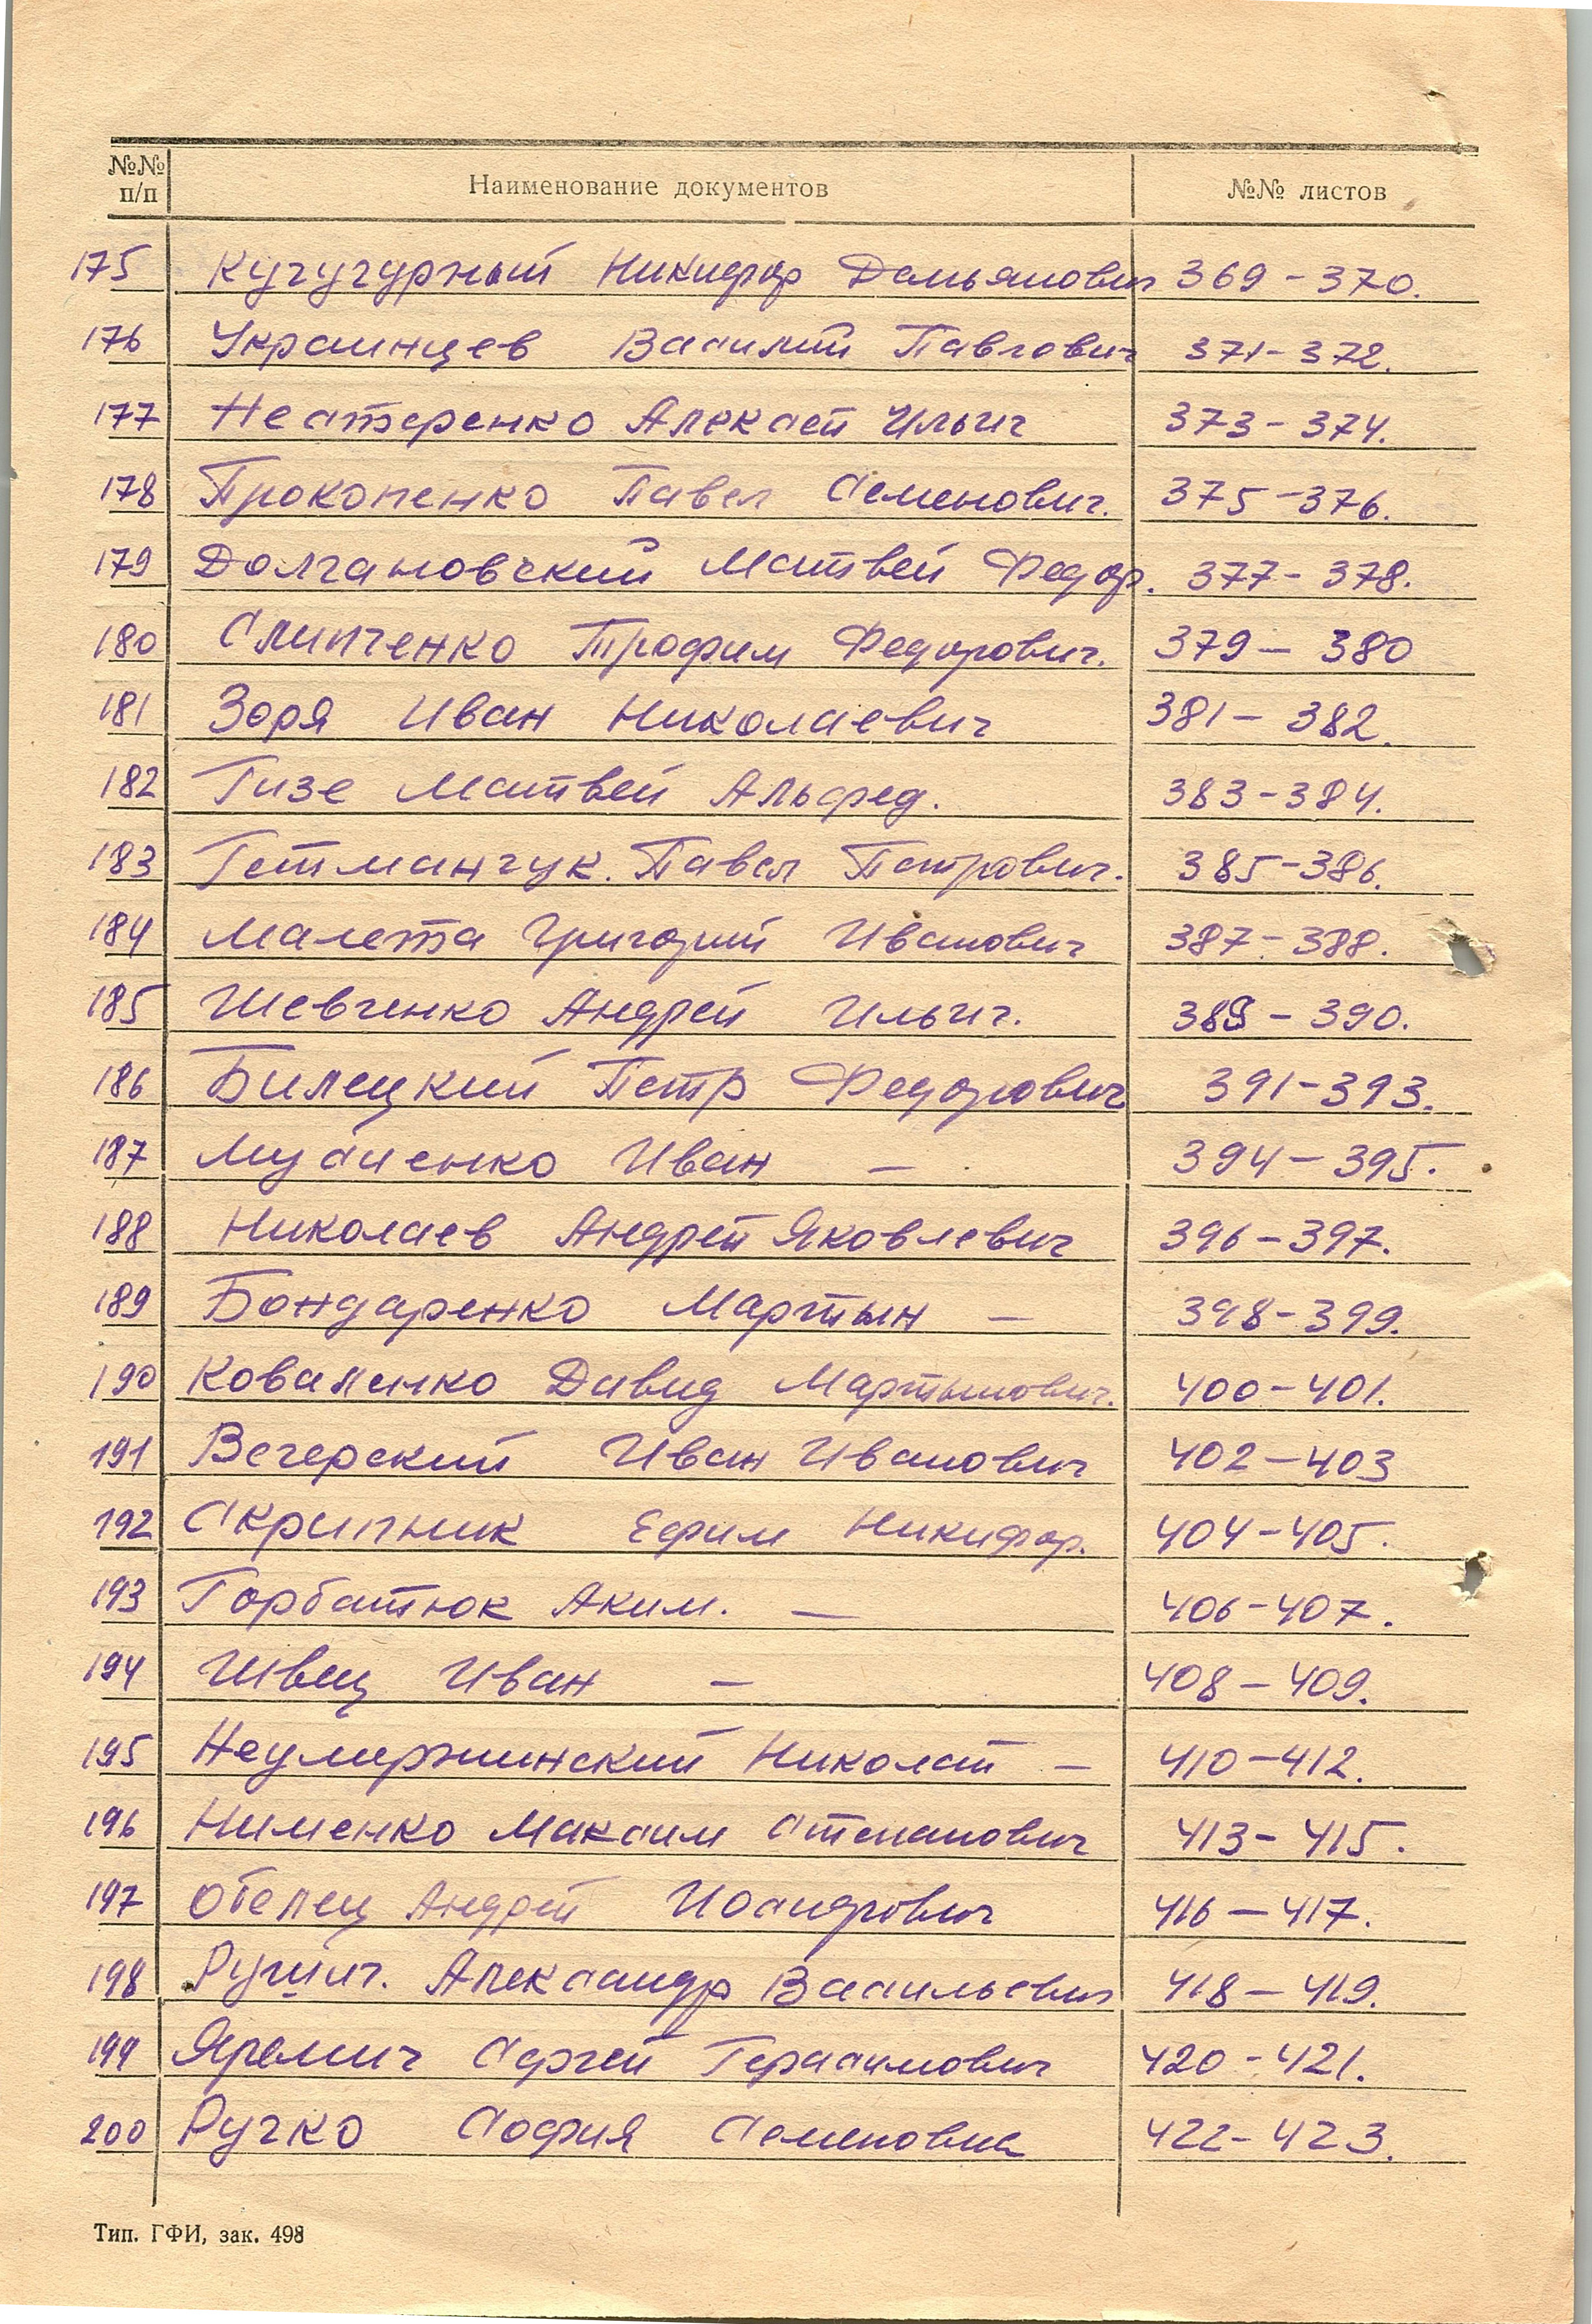 №№ п/п Наименование документов №№ листов
175 Кучугурный Никифор Демьянович 369-370.
176 Украинцев Василий Павлович 371-372.
177 Нестеренко Алексей Ильич 373-374.
178 Прокопенко Павел Семенович. 375-376.
179 Долгановский Матвей Федор. 377-378.
180 Слипченко Трофим Федорович. 379-380
181 Зоря Иван Николаевич 381-382.
182 Гизе Матвей Альфред. 383-384.
183 Гетманчук. Павел Петрович. 385-386.
184 Малета Григорий Иванович 387-388.
185 Шевченко Андрей Ильич. 389-390.
186 Билецкий Петр Федорович 391-393.
187 Мусиенко Иван - 394-395.
188 Николаев Андрей Яковлевич 396-397.
189 Бондаренко Мартын - 398-399.
190 Коваленко Давид Мартынович. 400-401.
191 Вечерский Иван Иванович 402-403
192 Скрипник Ефим Никифор. 404-405.
193 Горбатюк Аким. - 406-407.
194 Швец Иван - 408-409.
195 Неумержинский Николай - 410-412.
196 Нименко Максим Степанович 413-415.
197 Обелец Андрей 416-417.
198 Александр Васильевич 418-419.
199 Яремич Сергей Герасимович 420-421.
200 Ручко София Семеновна 422-423.
Тип. ГФИ, зак. 498